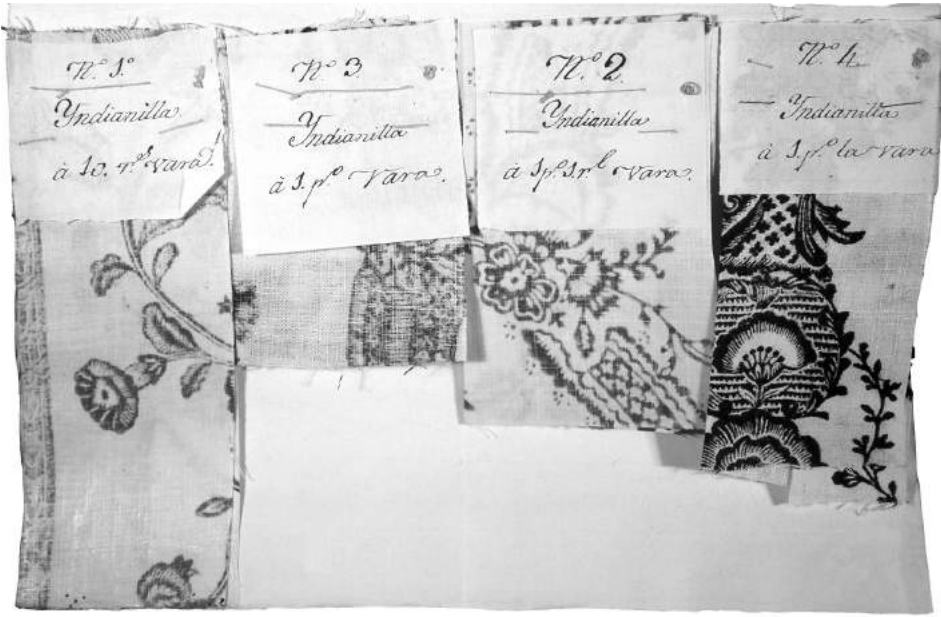 Nº 1º
Yndianilla
à 10. rs vara
Nº 3
Yndianilla
à 1. po vara.
Nº 2
Yndianilla
à 1 po. 1 rl vara.
Nº 4
Yndianilla
à 1. po la vara